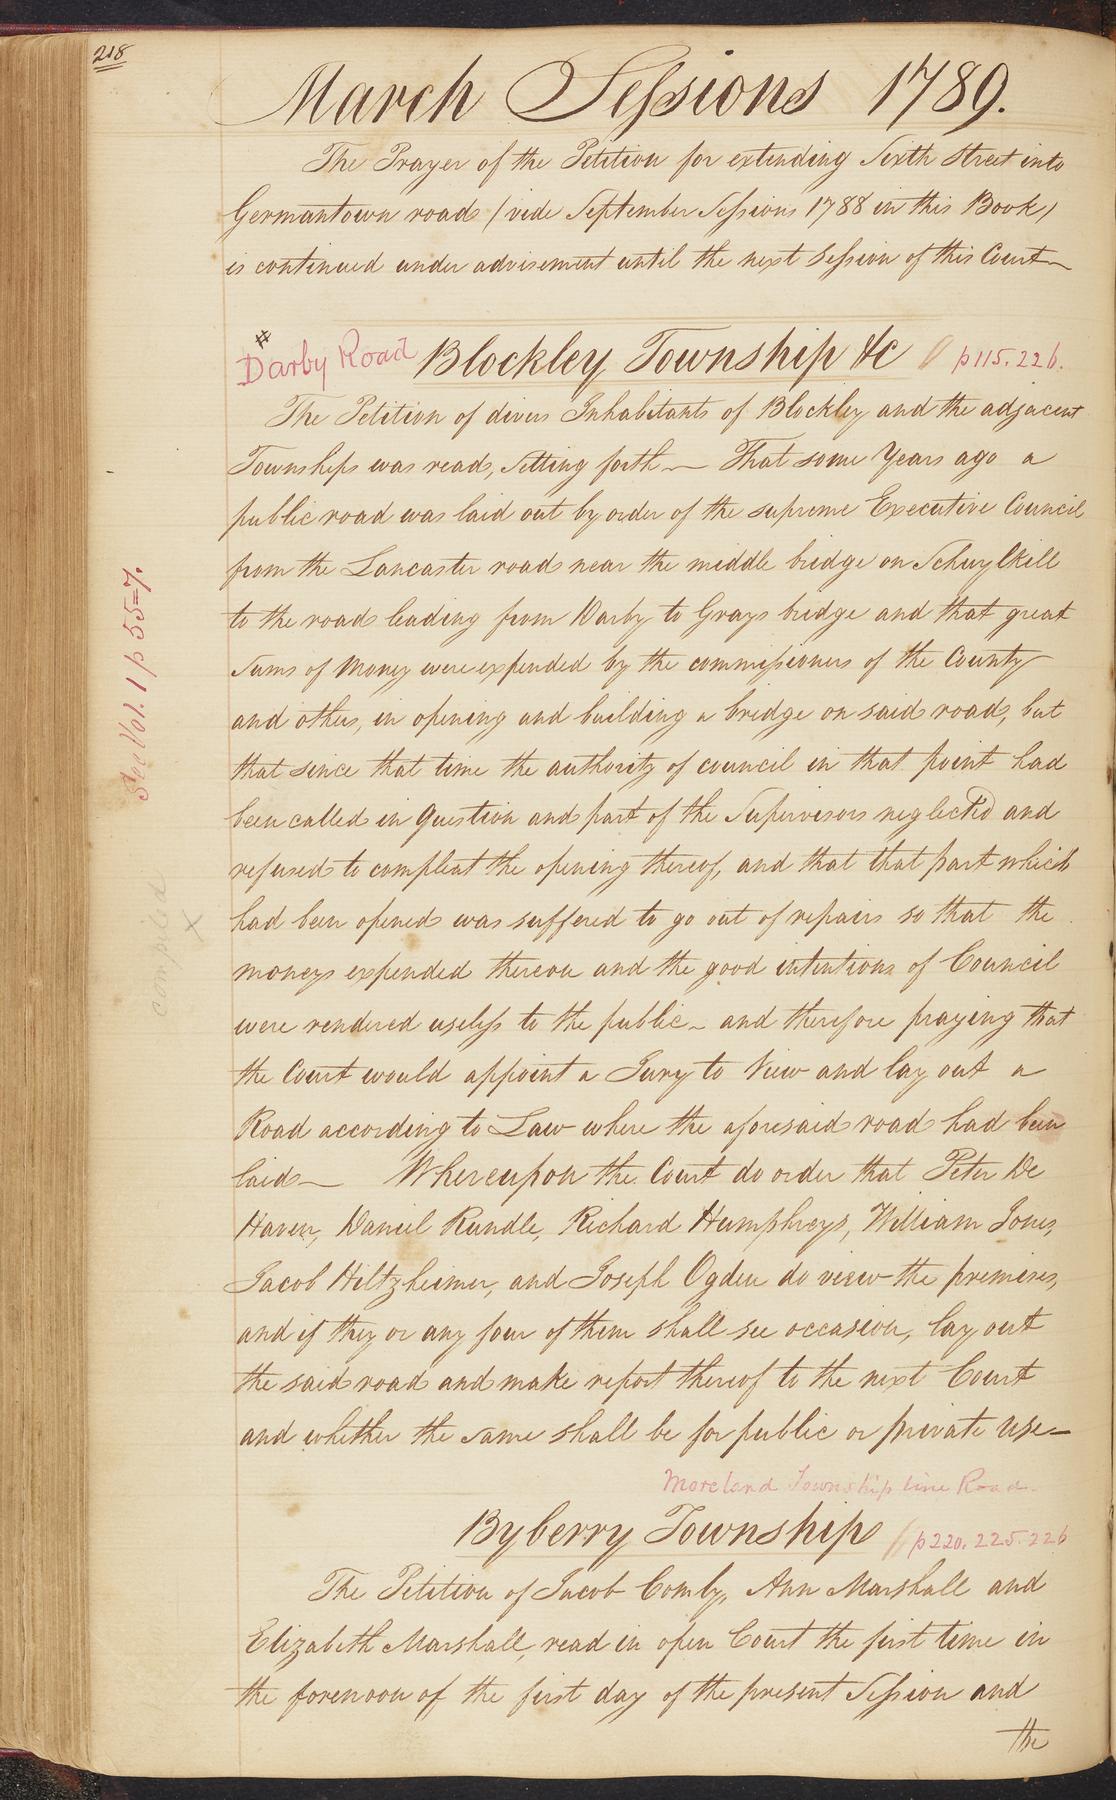 218
March Sessions 1789.
The Prayer of the Petition for extending Sixth Street into
Germantown road (vide September Sessions 1788 in this Book)
is continued under advisement until the next Session of this Court
#
Darby Road Blockley Township &c p 115. 226.
The Petition of divers Inhabitants of Blockley and the adjacent
Townships was read, setting forth — That some Years ago a
public road was laid out by order of the supreme Executive Council
from the Lancaster road near the middle bridge on Schuylkill
to the road leading from Darby to Grays bridge and that great
Sums of Money were expended by the commissioners of the County
and others, in opening and building a bridge on said road, but
that since that time the authority of council in that point had
been called in Question and part of the Supervisors neglected and
refused to compleat the opening thereof, and that that part which
had been opened was suffered to go out of repairs so that the
moneys expended thereon and the good intentions of Council
were rendered useless to the public — and therefore praying that
the Court would appoint a Jury to View and lay out a
Road according to Law where the aforesaid road had been
laid — Whereupon the Court do order that Peter De
Haven, Daniel Rundle, Richard Humphreys, William Jones,
Jacob Hiltzheimer, and Joseph Ogden do view the premises,
and if they or any four of them shall see occasion, lay out
the said road and make report thereof to the next Court
and whether the same shall be for public or private use —
See Vol. 1 p 55=7.
X
Moreland Township line Road
Byberry Township p 220. 225. 226
The Petition of Jacob Comly, Ann Marshall and
Elizabeth Marshall, read in open Court the first time in
the forenoon of the first day of the present Session and
the